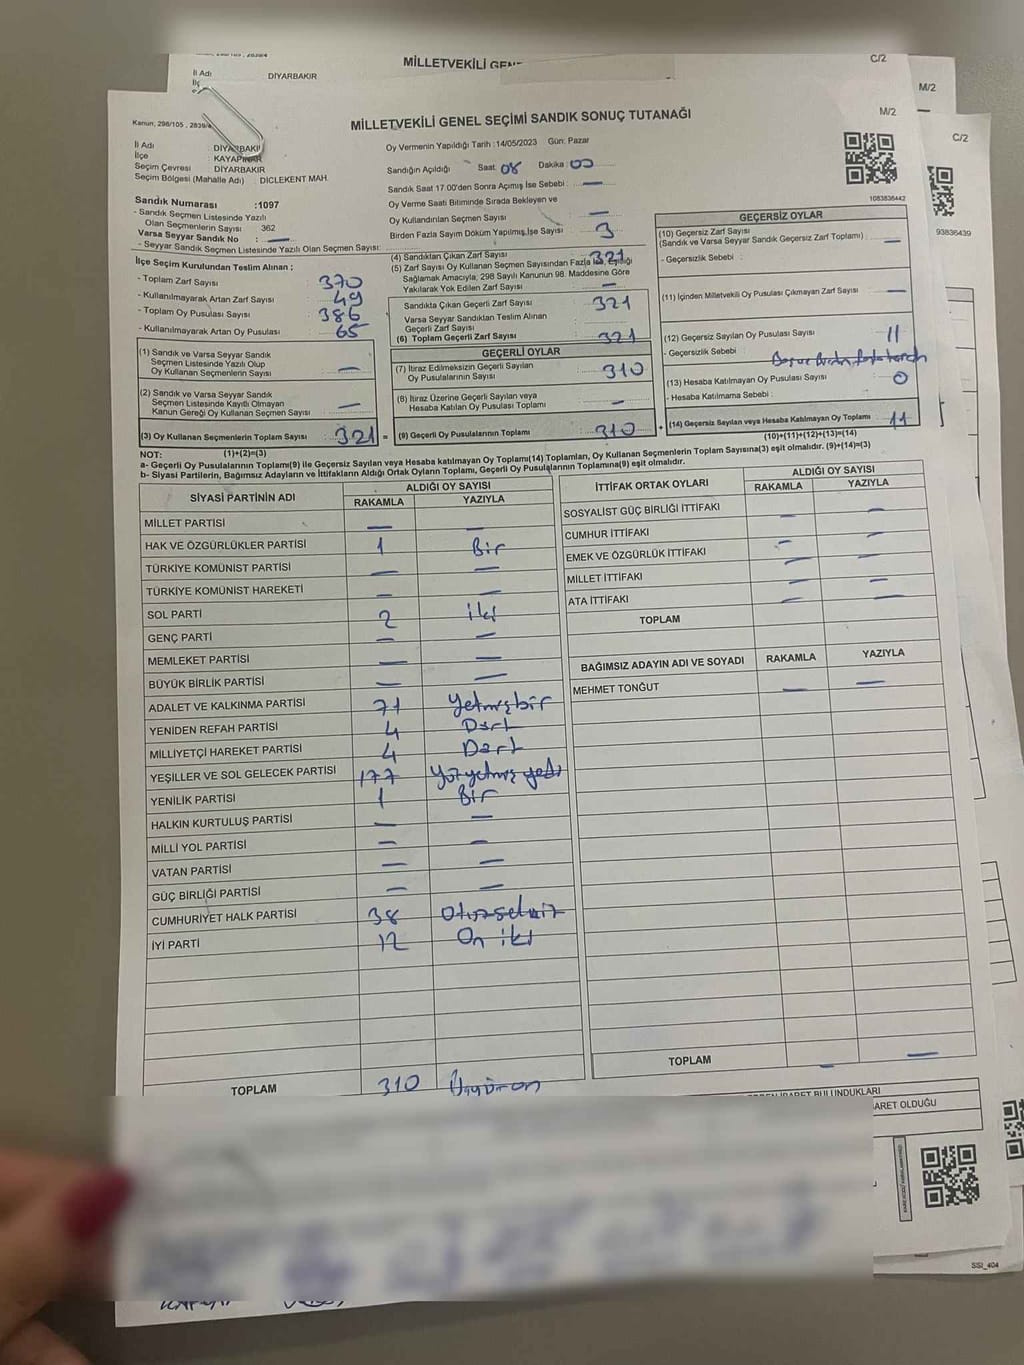 MİLLETVEKİLİ GEN
C/2
İl Adı DİYARBAKIR
M/2
C/2
93836439
Kanun, 298/105 , 2839/4
MİLLETVEKİLİ GENEL SEÇİMİ SANDIK SONUÇ TUTANAĞI
M/2
İl Adı : DİYARBAKIR
İlçe : KAYAPINAR
Seçim Çevresi : DİYARBAKIR
Seçim Bölgesi (Mahalle Adı) : DİCLEKENT MAH.
Oy Vermenin Yapıldığı Tarih :14/05/2023 Gün: Pazar
Sandığın Açıldığı Saat: 08 Dakika: 00
Sandık Saat 17.00'den Sonra Açımış İse Sebebi : —
Oy Verme Saati Bitiminde Sırada Bekleyen ve
Oy Kullandırılan Seçmen Sayısı : —
Birden Fazla Sayım Döküm Yapılmış İse Sayısı : 3
1083836442
Sandık Numarası :1097
- Sandık Seçmen Listesinde Yazılı
Olan Seçmenlerin Sayısı 362
Varsa Seyyar Sandık No : —
- Seyyar Sandık Seçmen Listesinde Yazılı Olan Seçmen Sayısı:
İlçe Seçim Kurulundan Teslim Alınan ;
- Toplam Zarf Sayısı : 370
- Kullanılmayarak Artan Zarf Sayısı : 49
- Toplam Oy Pusulası Sayısı : 386
- Kullanılmayarak Artan Oy Pusulası : 65
(1) Sandık ve Varsa Seyyar Sandık
Seçmen Listesinde Yazılı Olup
Oy Kullanan Seçmenlerin Sayısı : —
(2) Sandık ve Varsa Seyyar Sandık
Seçmen Listesinde Kayıtlı Olmayan
Kanun Gereği Oy Kullanan Seçmen Sayısı : —
(3) Oy Kullanan Seçmenlerin Toplam Sayısı : 321 =
(4) Sandıktan Çıkan Zarf Sayısı : 321
(5) Zarf Sayısı Oy Kullanan Seçmen Sayısından Fazla
Sağlamak Amacıyla, 298 Sayılı Kanunun 98. Maddesine Göre
Yakılarak Yok Edilen Zarf Sayısı : —
Sandıkta Çıkan Geçerli Zarf Sayısı : 321
Varsa Seyyar Sandıktan Teslim Alınan
Geçerli Zarf Sayısı :
(6) Toplam Geçerli Zarf Sayısı : 321
GEÇERLİ OYLAR
(7) İtiraz Edilmeksizin Geçerli Sayılan
Oy Pusulalarının Sayısı : 310
(8) İtiraz Üzerine Geçerli Sayılan veya
Hesaba Katılan Oy Pusulası Toplamı : —
(9) Geçerli Oy Pusulalarının Toplamı : 310 +
GEÇERSİZ OYLAR
(10) Geçersiz Zarf Sayısı : —
(Sandık ve Varsa Seyyar Sandık Geçersiz Zarf Toplamı)
- Geçersizlik Sebebi :
(11) İçinden Milletvekili Oy Pusulası Çıkmayan Zarf Sayısı : —
(12) Geçersiz Sayılan Oy Pusulası Sayısı : 11
- Geçersizlik Sebebi :
(13) Hesaba Katılmayan Oy Pusulası Sayısı : 0
- Hesaba Katılmama Sebebi :
(14) Geçersiz Sayılan veya Hesaba Katılmayan Oy Toplamı : 11
(10)+(11)+(12)+(13)=(14)
NOT: (1)+(2)=(3)
a- Geçerli Oy Pusulalarının Toplamı(9) ile Geçersiz Sayılan veya Hesaba katılmayan Oy Toplamı(14) Toplamları, Oy Kullanan Seçmenlerin Toplam Sayısına(3) eşit olmalıdır. (9)+(14)=(3)
b- Siyasi Partilerin, Bağımsız Adayların ve İttifakların Aldığı Ortak Oyların Toplamı, Geçerli Oy Pusulalarının Toplamına(9) eşit olmalıdır.
SİYASİ PARTİNİN ADI ALDIĞI OY SAYISI
RAKAMLA YAZIYLA
MİLLET PARTİSİ — —
HAK VE ÖZGÜRLÜKLER PARTİSİ 1 Bir
TÜRKİYE KOMÜNİST PARTİSİ — —
TÜRKİYE KOMÜNİST HAREKETİ — —
SOL PARTİ 2 iki
GENÇ PARTİ — —
MEMLEKET PARTİSİ — —
BÜYÜK BİRLİK PARTİSİ — —
ADALET VE KALKINMA PARTİSİ 71 Yetmişbir
YENİDEN REFAH PARTİSİ 4 Dört
MİLLİYETÇİ HAREKET PARTİSİ 4 Dört
YEŞİLLER VE SOL GELECEK PARTİSİ 177 Yüzyetmiş yedi
YENİLİK PARTİSİ 1 Bir
HALKIN KURTULUŞ PARTİSİ — —
MİLLİ YOL PARTİSİ — —
VATAN PARTİSİ — —
GÜÇ BİRLİĞİ PARTİSİ — —
CUMHURİYET HALK PARTİSİ 38 Otuzsekiz
İYİ PARTİ 12 On iki
TOPLAM 310 Üçyüzon
İTTİFAK ORTAK OYLARI ALDIĞI OY SAYISI
RAKAMLA YAZIYLA
SOSYALİST GÜÇ BİRLİĞİ İTTİFAKI — —
CUMHUR İTTİFAKI — —
EMEK VE ÖZGÜRLÜK İTTİFAKI — —
MİLLET İTTİFAKI — —
ATA İTTİFAKI — —
TOPLAM
BAĞIMSIZ ADAYIN ADI VE SOYADI RAKAMLA YAZIYLA
MEHMET TONĞUT — —
TOPLAM — —
BULUNDUKLARI
ARET OLDUĞU
SSI_404